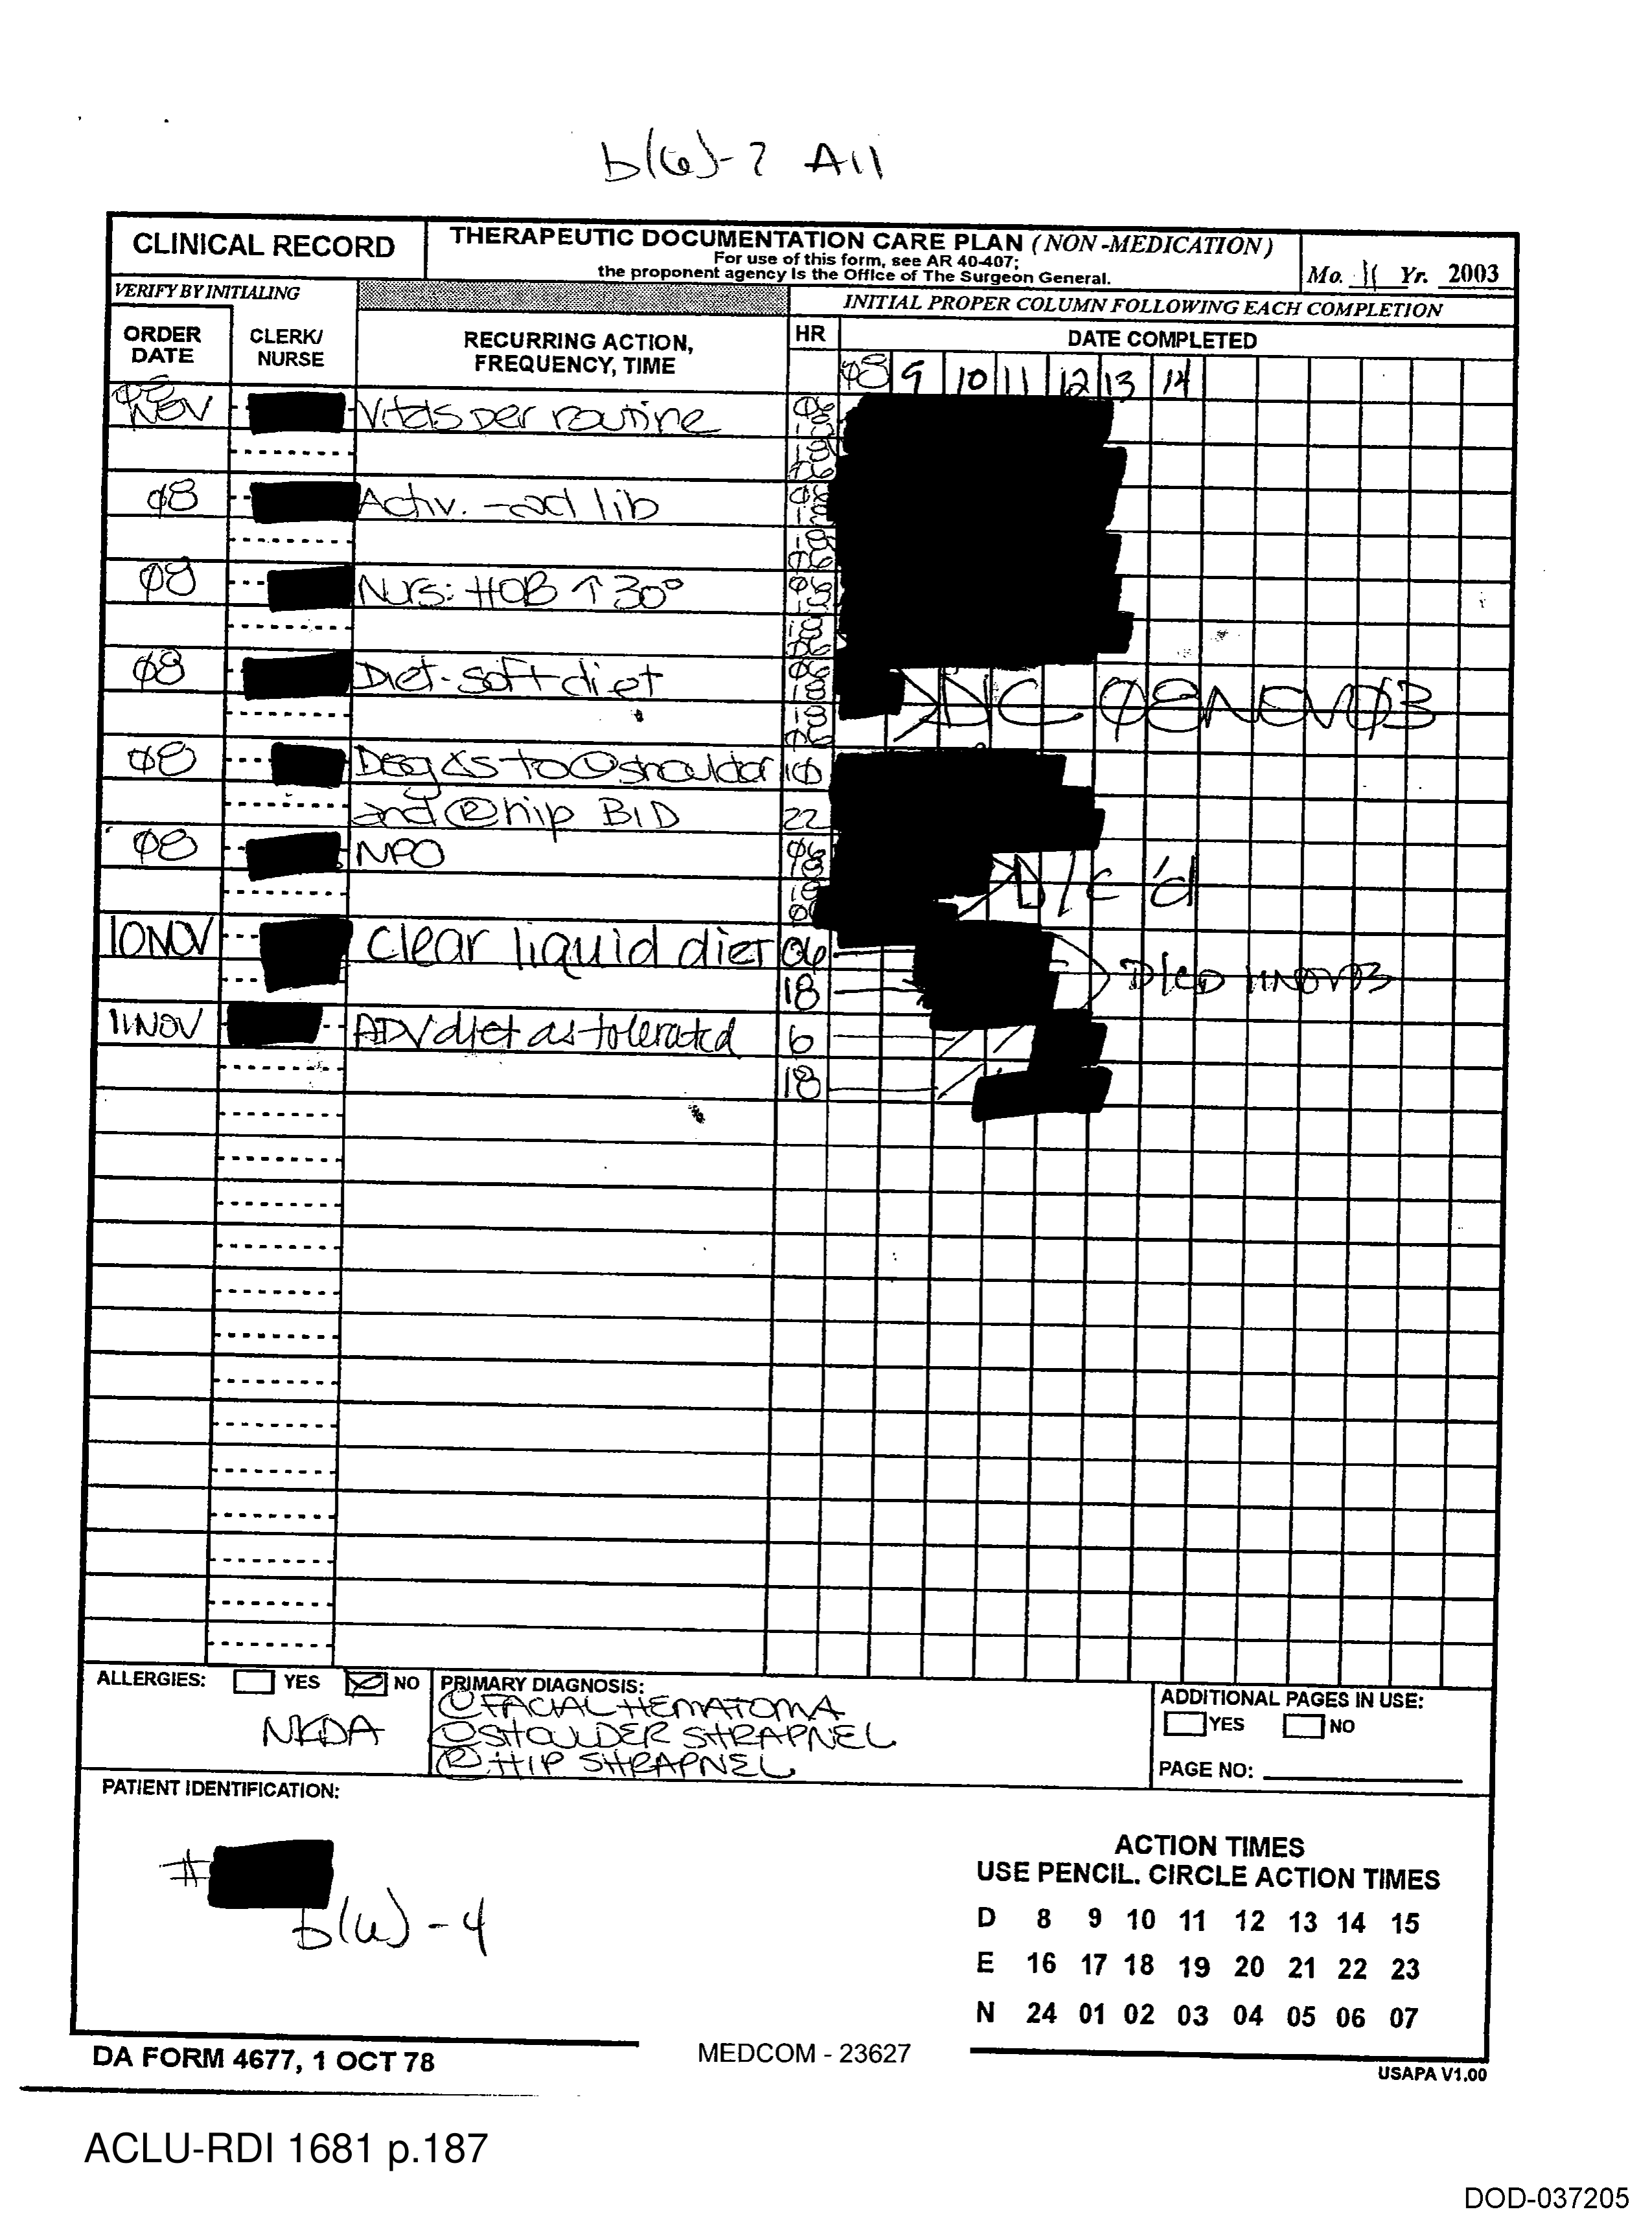 b(6)-2 All
CLINICAL RECORD
THERAPEUTIC DOCUMENTATION CARE PLAN (NON-MEDICATION)
For use of this form, see AR 40-407;
the proponent agency is the Office of The Surgeon General.
Mo. 11 Yr. 2003
VERIFY BY INITIALING
INITIAL PROPER COLUMN FOLLOWING EACH COMPLETION
ORDER DATE
CLERK/ NURSE
RECURRING ACTION, FREQUENCY, TIME
HR
DATE COMPLETED
Ø8 9 10 11 12 13 14
Ø8 NOV Vitals per routine Ø6 18
18 Ø6
Ø8 Activ. - ad lib Ø6 18
18 Ø6
Ø8 Nurs: HOB ↑ 30° Ø6 18
18 Ø6
Ø8 Diet - soft diet Ø6 18 D/C Ø8NOVØ3
18 Ø6
Ø8 Dsg Δs to Ⓛ shoulder 10
and Ⓡ hip BID 22
Ø8 NPO Ø6 18 D/c'd
18 Ø6
10NOV clear liquid diet 06 D/CD 11NOV03
18
11NOV ADV diet as tolerated 6
18
ALLERGIES: YES NO
NKDA
PRIMARY DIAGNOSIS:
Ⓛ FACIAL HEMATOMA
Ⓛ SHOULDER SHRAPNEL
Ⓡ HIP SHRAPNEL
ADDITIONAL PAGES IN USE:
YES NO
PAGE NO:
PATIENT IDENTIFICATION:
#
b(6)-4
ACTION TIMES
USE PENCIL. CIRCLE ACTION TIMES
D 8 9 10 11 12 13 14 15
E 16 17 18 19 20 21 22 23
N 24 01 02 03 04 05 06 07
DA FORM 4677, 1 OCT 78
MEDCOM - 23627
USAPA V1.00
ACLU-RDI 1681 p.187
DOD-037205